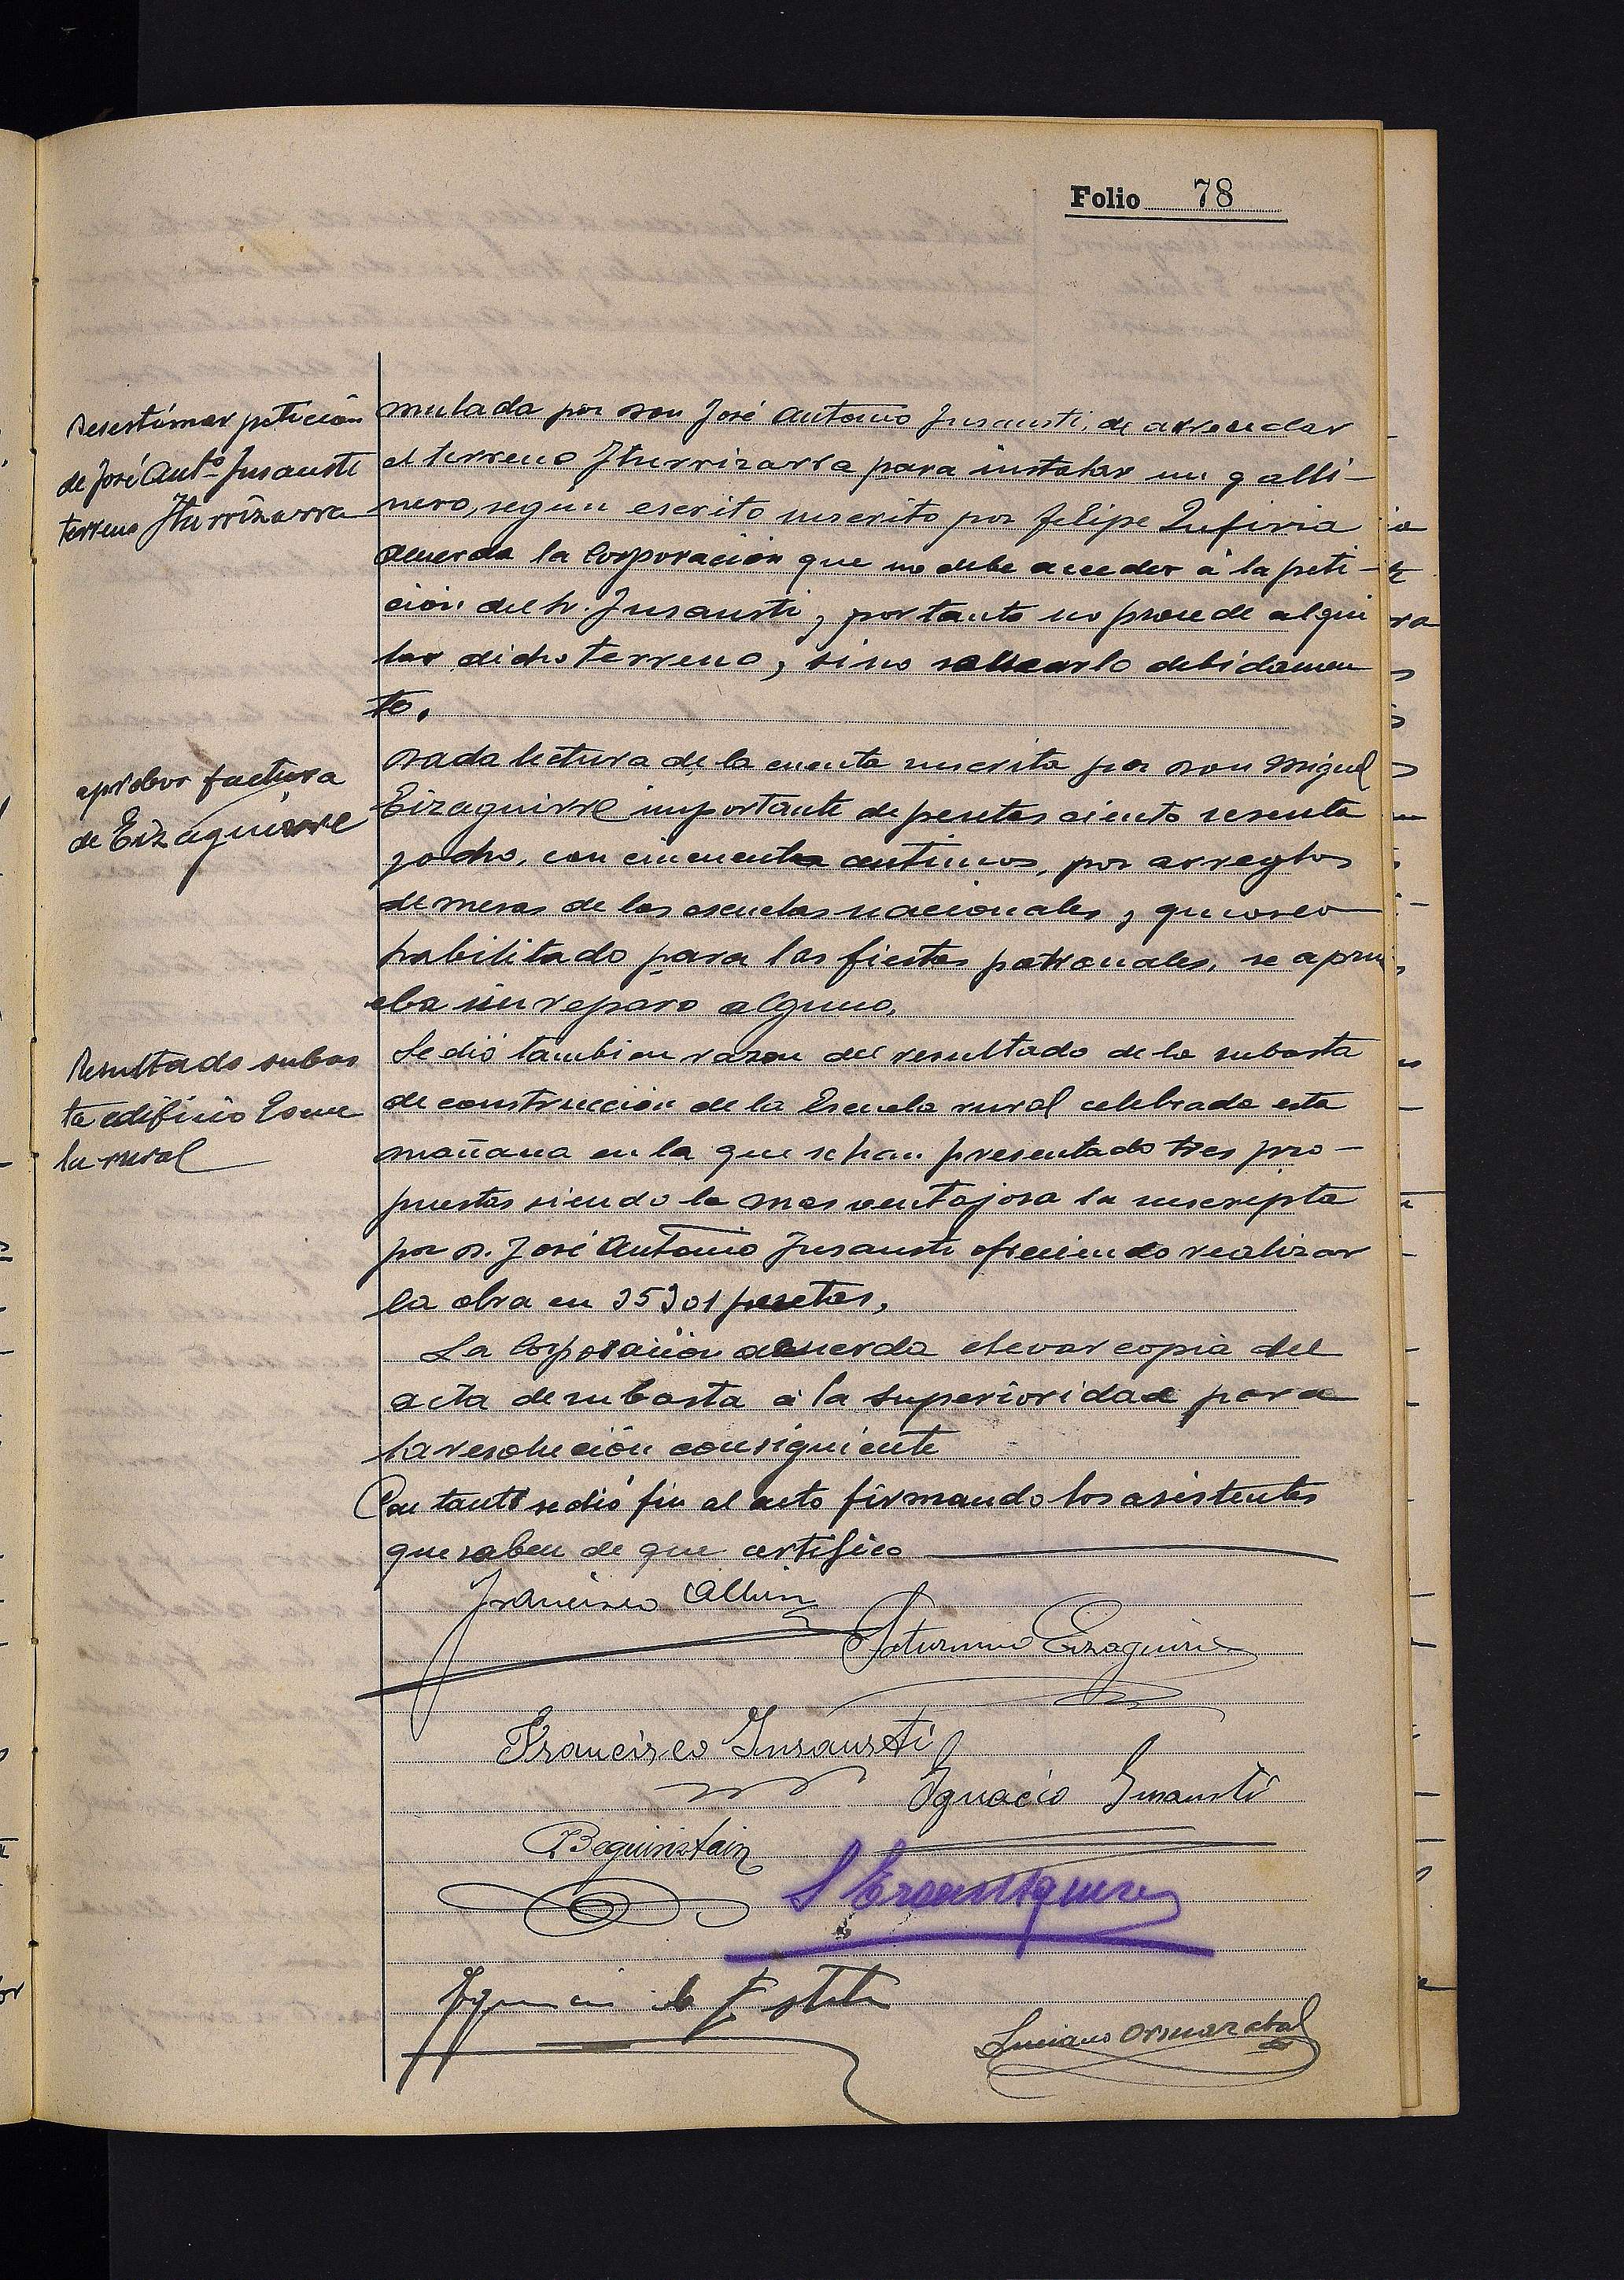 Folio 78
Desestimar petición
de José Antº Insausti
terreno Iturrizarra
mulada por Don José Antonio Insausti, de arrendar
el terreno Iturrizarra para instalar un galli-
nero, según escrito suscrito por Felipe
acuerda la Corporación que no debe acceder á la peti-
ción del Sr. Insausti, y por tanto no procede alqui
lar dicho terreno, sino debidamen
te.
aprobar factura
de Eizaguirre
Dada lectura de la cuenta suscrita por Don Miguel
Eizaguirre importante de pesetas ciento sesenta
y ocho, con cincuenta centimos, por arreglos
de mesas de las escuelas nacionales, y
habilitado para las fiestas patronales, se apru
eba sin reparo alguno.
Resultado subas
ta edificio Escue
la rural
Se dió tambien razon del resultado de la subasta
de construcción de la Escuela rural celebrada esta
mañana en la que se han presentado tres pro-
puestas siendo la mas ventajosa la suscripta
por D. José Antonio Insausti ofreciendo realizar
la obra en 35301 pesetas.
La Corporación acuerda elevar copia del
acta de subasta á la superioridad para
la resolución consiguiente
Con tanto se dió fin al acto firmando los asistentes
que saben de que certifico
Francisco
Saturnino Eizaguirre
Francisco Insausti
Ignacio Insausti
Beguiristain
Luciano Ormazabal